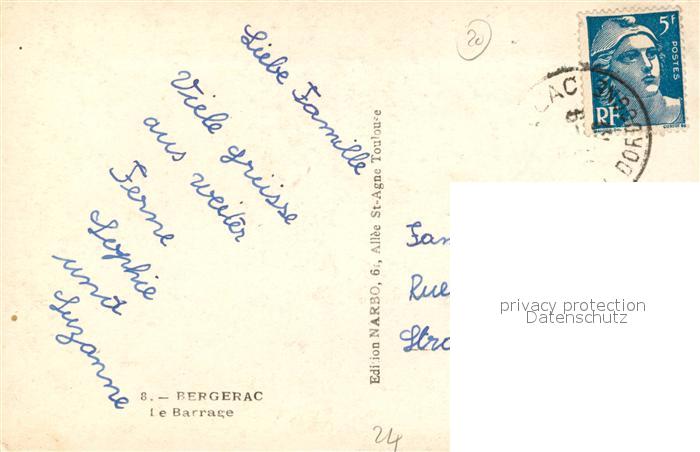 Liebe Famille
Viele grüsse
aus weiter
Ferne
Sophie
und
Suzanne
8. — BERGERAC
Le Barrage
Edition NARBO, 6, Allée St-Agne Toulouse
20
5F
POSTES
RF
DORDOGNE
Fam
Rue
Stra
privacy protection
Datenschutz
24